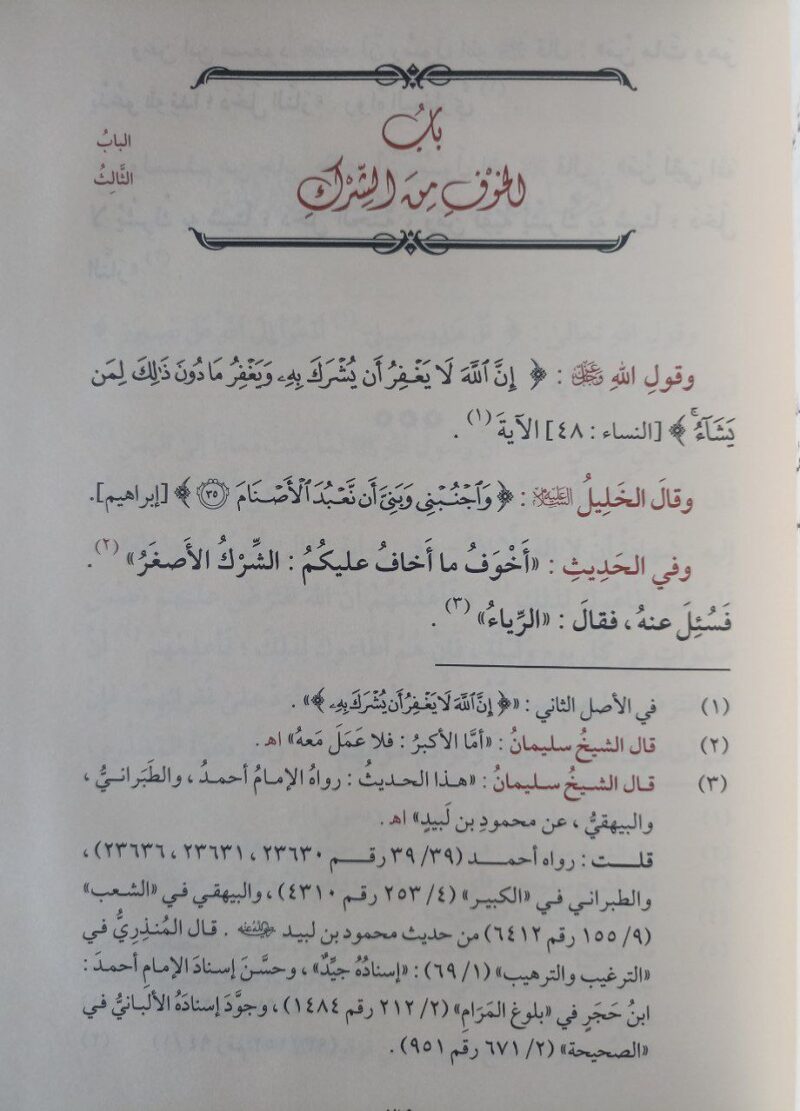 بابُ
الخوْفِ مِنَ الشِّرْكِ
البابُ
الثَّالِثُ
وقولِ اللهِ ﷻ : ﴿ إِنَّ ٱللَّهَ لَا يَغْفِرُ أَن يُشْرَكَ بِهِۦ وَيَغْفِرُ مَا دُونَ ذَٰلِكَ لِمَن
يَشَآءُۚ ﴾ [النساء : ٤٨] الآيةَ (١) .
وقالَ الخَلِيلُ عليه السلام : ﴿ وَٱجْنُبْنِي وَبَنِيَّ أَن نَّعْبُدَ ٱلْأَصْنَامَ ۝٣٥ ﴾ [إبراهيم].
وفي الحَدِيثِ : «أَخْوَفُ ما أَخافُ عليكُمُ : الشِّرْكُ الأَصغَرُ» (٢) .
فَسُئِلَ عنهُ ، فقالَ : «الرِّياءُ» (٣) .
(١) في الأصل الثاني : «﴿ إِنَّ ٱللَّهَ لَا يَغْفِرُ أَن يُشْرَكَ بِهِۦ ﴾» .
(٢) قال الشيخُ سليمانُ : «أمَّا الأكبرُ : فلا عَمَلَ مَعهُ» اهـ .
(٣) قال الشيخُ سليمانُ : «هذا الحديثُ : رواهُ الإمامُ أحمدُ ، والطَبَرانيُّ ،
والبيهقيُّ ، عن محمودِ بن لَبيدٍ» اهـ .
قلت : رواه أحمد (٣٩/ ٣٩ رقم ٢٣٦٣٠ ، ٢٣٦٣١ ، ٢٣٦٣٦) ،
والطبراني في «الكبير» (٤/ ٢٥٣ رقم ٤٣١٠) ، والبيهقي في «الشعب»
(٩/ ١٥٥ رقم ٦٤١٢) من حديث محمود بن لبيد رضي الله عنه . قال المُنذِرِيُّ في
«الترغيب والترهيب» (١/ ٦٩) : «إسنادُهُ جيِّدٌ» ، وحسَّنَ إسنادَ الإمامِ أحمدَ :
ابنُ حَجَرٍ في «بلوغ المَرَامِ» (٢/ ٢١٢ رقم ١٤٨٤) ، وجوَّدَ إسنادَهُ الألبانيُّ في
«الصحيحة» (٢/ ٦٧١ رقم ٩٥١) .